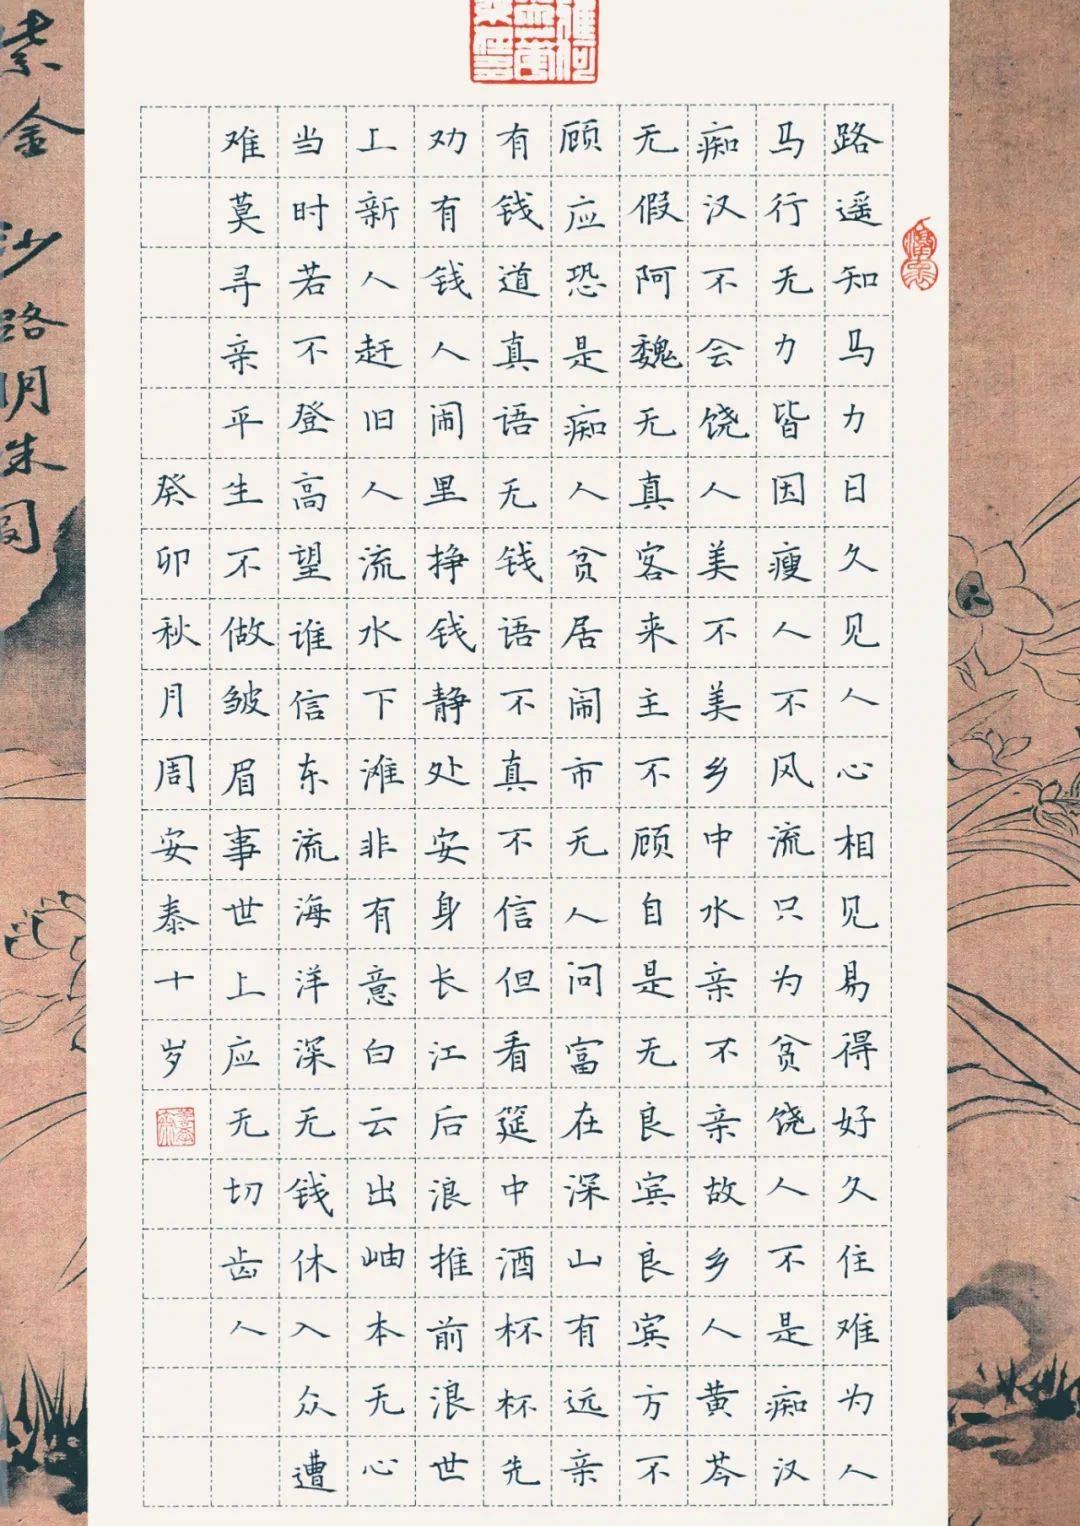 路遥知马力日久见人心相见易得好久住难为人
马行无力皆因瘦人不风流只为贫饶人不是痴汉
痴汉不会饶人美不美乡中水亲不亲故乡人黄芩
无假阿魏无真客来主不顾自是无良宾良宾方不
顾应恐是痴人贫居闹市无人问富在深山有远亲
有钱道真语无钱语不真不信但看筵中酒杯杯先
劝有钱人闹里挣钱静处安身长江后浪推前浪世
上新人赶旧人流水下滩非有意白云出岫本无心
当时若不登高望谁信东流海洋深无钱休入众遭
难莫寻亲平生不做皱眉事世上应无切齿人
癸卯秋月周安泰十岁
紫金沙路明朱